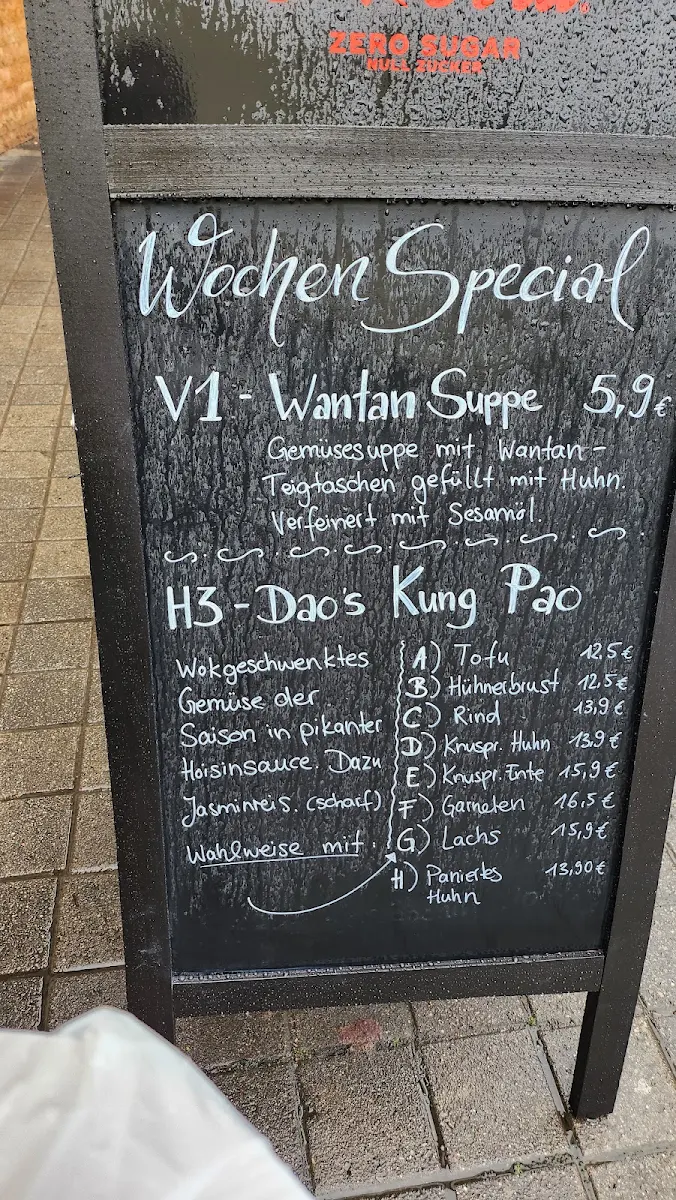 ZERO SUGAR
NULL ZUCKER
Wochen Special
V1 - Wantan Suppe 5,9€
Gemüsesuppe mit Wantan-
Teigtaschen gefüllt mit Huhn.
Verfeinert mit Sesamöl.
H3 - Dao's Kung Pao
Wokgeschwenktes
Gemüse der
Saison in pikanter
Hoisinsauce. Dazu
Jasminreis. (scharf)
Wahlweise mit:
A) Tofu 12,5€
B) Hühnerbrust 12,5€
C) Rind 13,9€
D) Knuspr. Huhn 13,9€
E) Knuspr. Ente 15,9€
F) Garnelen 16,5€
G) Lachs 15,9€
H) Paniertes 13,90€
Huhn